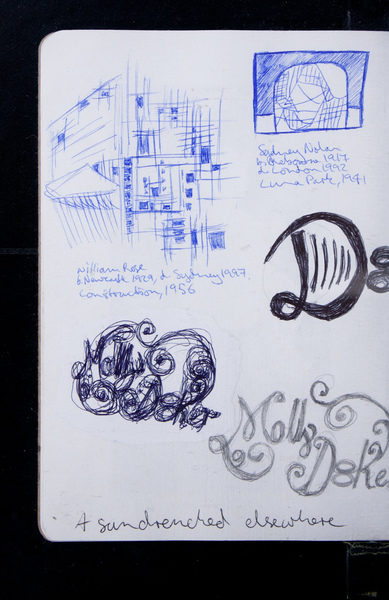 Sydney Nolan
b. Melbourne 1917
d. London 1992
Luna Park, 1941
William Rose
b. Newcastle 1929, d. Sydney 1997
Construction, 1956
D
Molly
Doke
A sundrenched elsewhere